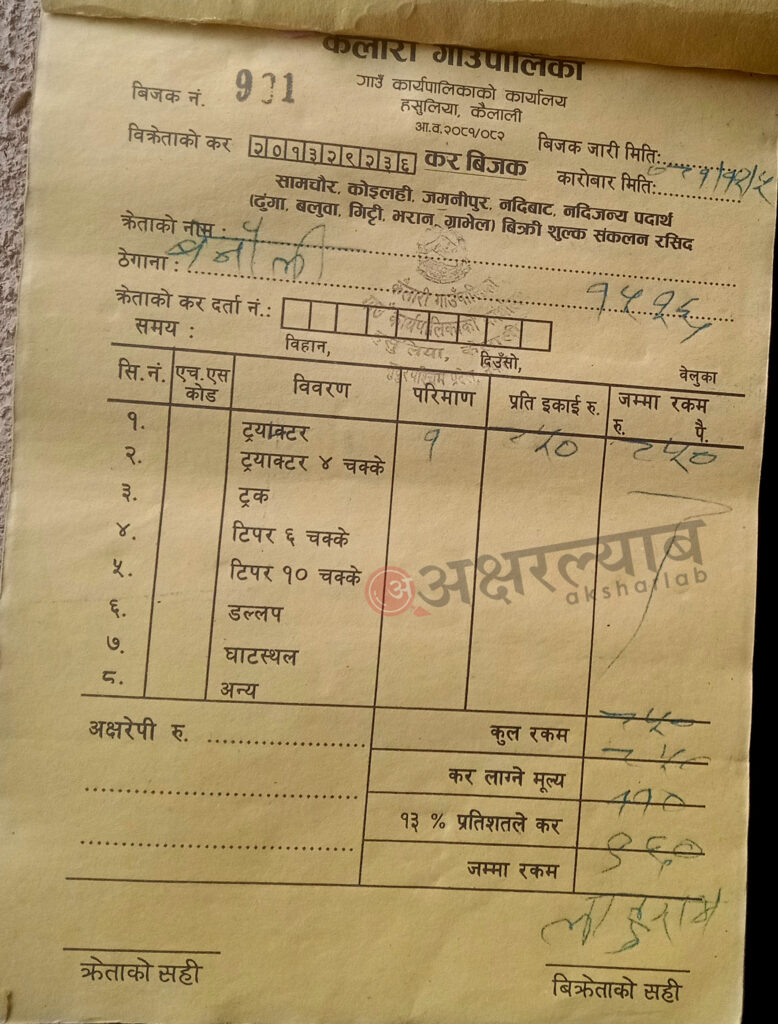 कैलारी गाउँपालिका
गाउँ कार्यपालिकाको कार्यालय
हसुलिया, कैलाली
आ.व.२०८१/०८२
बिजक नं. 901
बिजक जारी मिति:
विक्रेताको कर २०१३२९२३६ कर बिजक कारोबार मिति:
सामचौर, कोइलही, जमनीपुर, नदिबाट, नदिजन्य पदार्थ
(ढुंगा, बलुवा, गिट्टी, भरान, ग्राभेल) बिक्री शुल्क संकलन रसिद
क्रेताको नाम :
ठेगाना : बनौली
क्रेताको कर दर्ता नं.:
समय : विहान, दिउँसो, वेलुका
सि.नं. एच.एस कोड विवरण परिमाण प्रति इकाई रु. जम्मा रकम रु. पै.
१. ट्रयाक्टर १ ८५० ८५०
२. ट्रयाक्टर ४ चक्के
३. ट्रक
४. टिपर ६ चक्के
५. टिपर १० चक्के
अक्षरल्याब
aksharlab
६. डल्लप
७. घाटस्थल
८. अन्य
अक्षरेपी रु. कुल रकम ८५०
कर लाग्ने मूल्य ८५०
१३ % प्रतिशतले कर ११०
जम्मा रकम ९६०
क्रेताको सही
बिक्रेताको सही